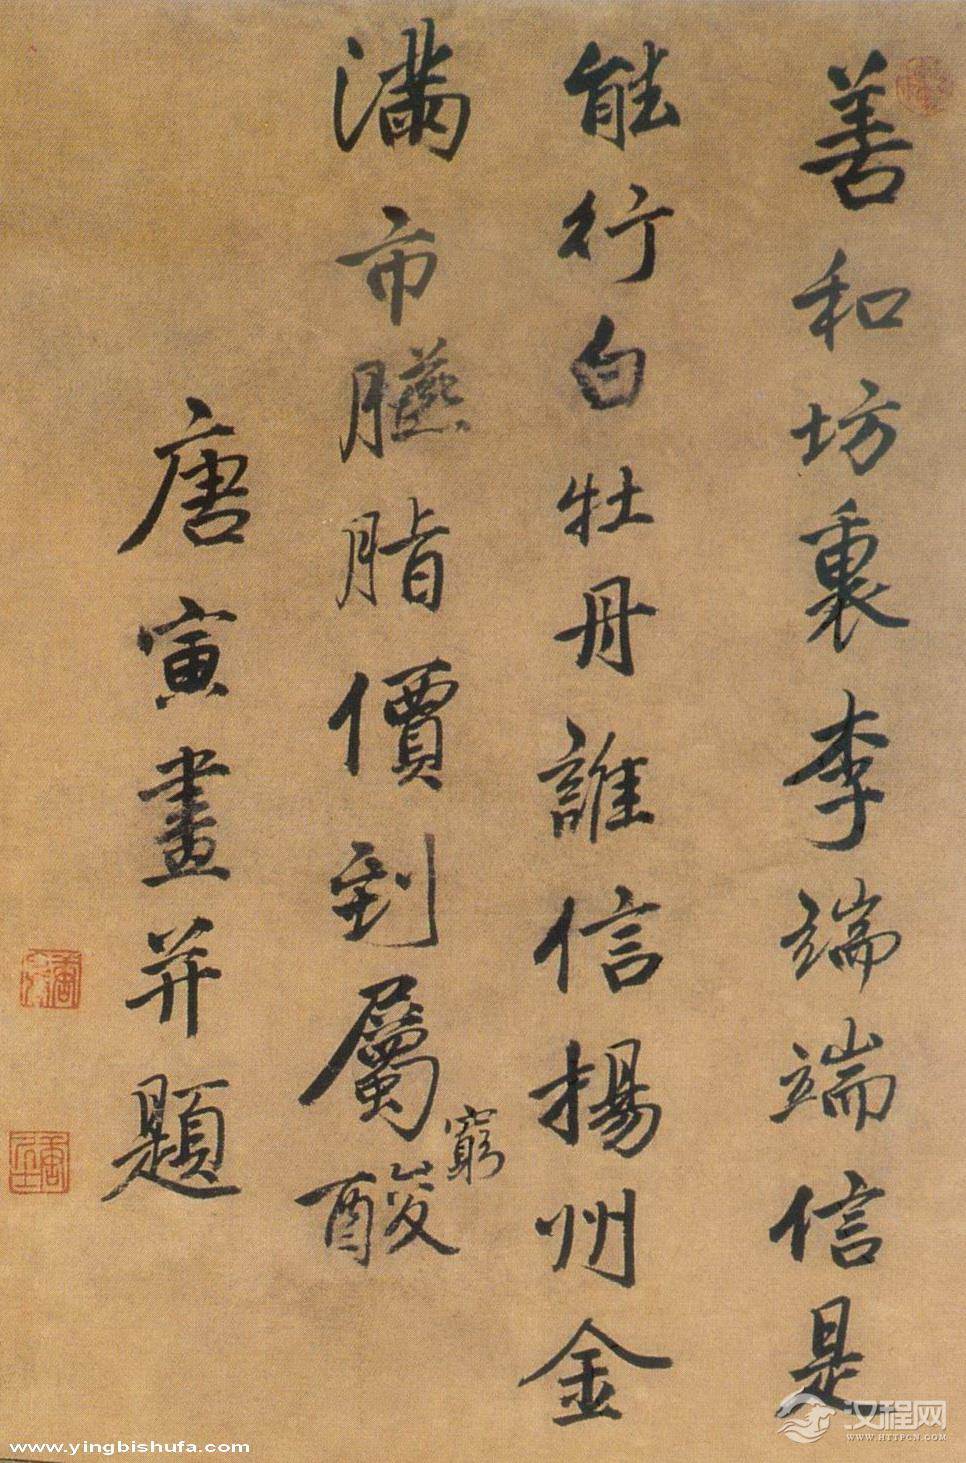 善和坊裏李端端信是
能行白牡丹誰信揚州金
滿市臙脂價到屬窮酸
唐寅畫并題
www.yingbishufa.com
汉程网
WWW.HTTPCN.COM